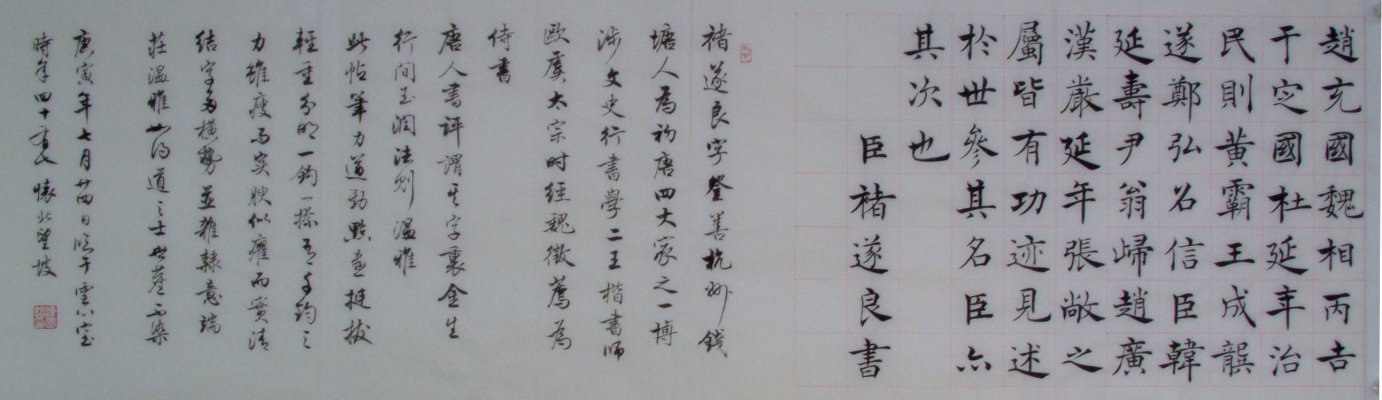 趙充國魏相丙吉
于定國杜延年治
民則黃霸王成龔
遂鄭弘召信臣韓
延壽尹翁歸趙廣
漢嚴延年張敞之
屬皆有功迹見述
於世參其名臣亦
其次也
臣褚遂良書
褚遂良字登善杭州錢
塘人為初唐四大家之一博
涉文史行書學二王楷書师
歐虞太宗时經魏徵薦为
侍書
唐人書評謂其字裏金生
行间玉潤法则温雅
此帖筆力遒勁點畫挺拔
輕重分明一鈎一捺有千鈞之
力雖瘦而实腴似癯而實清
结字多橫势並雜隸意端
莊温雅如得道之士世塵不染
庚寅年七月廿四日临于雲心室
時年四十有 懷北望坡